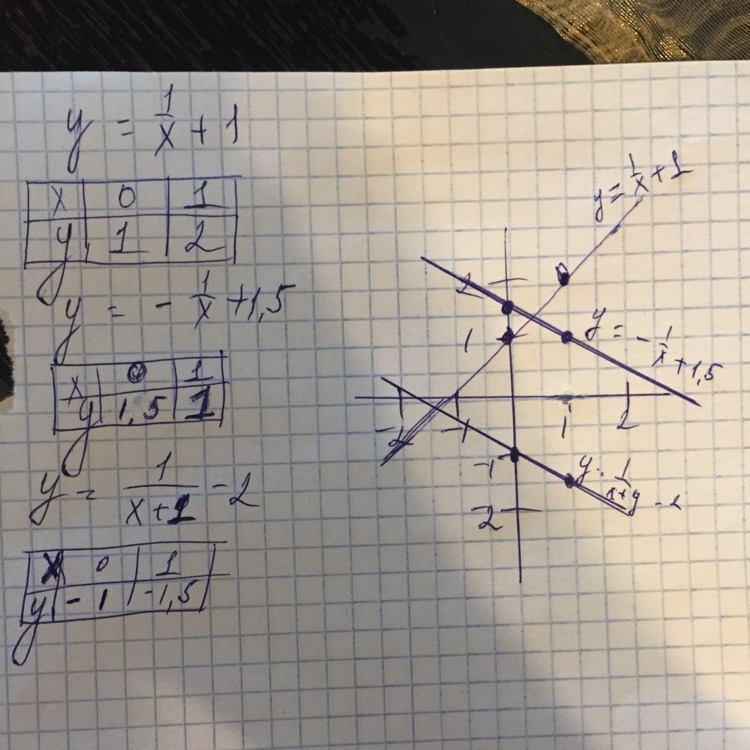 y = 1/x + 1
x 0 1
y 1 2
y = - 1/x + 1,5
x 0 1
y 1,5 1
y = 1/(x+1) - 2
x 0 1
y -1 -1,5
y = 1/x + 1
2
1
y = - 1/x + 1,5
-2 -1 1 2
-1
-2